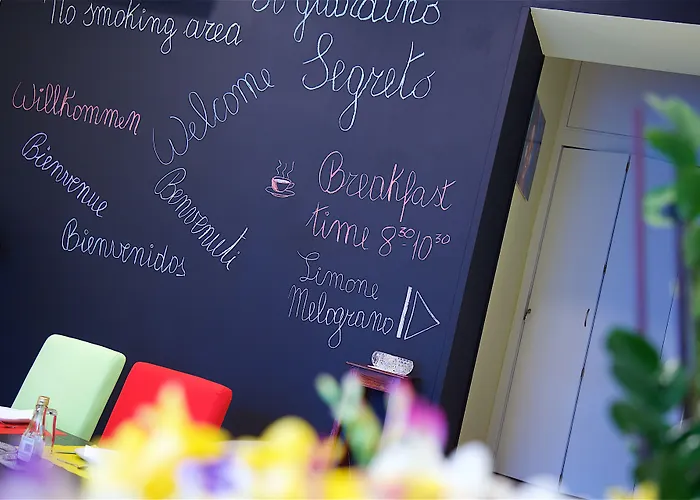 No smoking area
Il giardino
Segreto
Willkommen
Welcome
Bienvenue
Benvenuti
Bienvenidos
Breakfast
time 8³⁰-10³⁰
Limone
Melograno